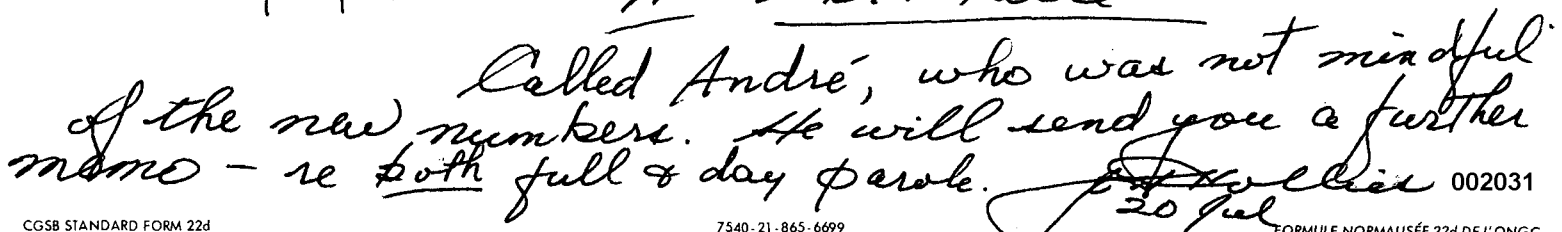 Called André, who was not mindful
of the new numbers. He will send you a further
memo – re both full & day parole. Hollies 002031
20 Jul
CGSB STANDARD FORM 22d 7540-21-865-6699 FORMULE NORMALISÉE 22d DE L'ONGC